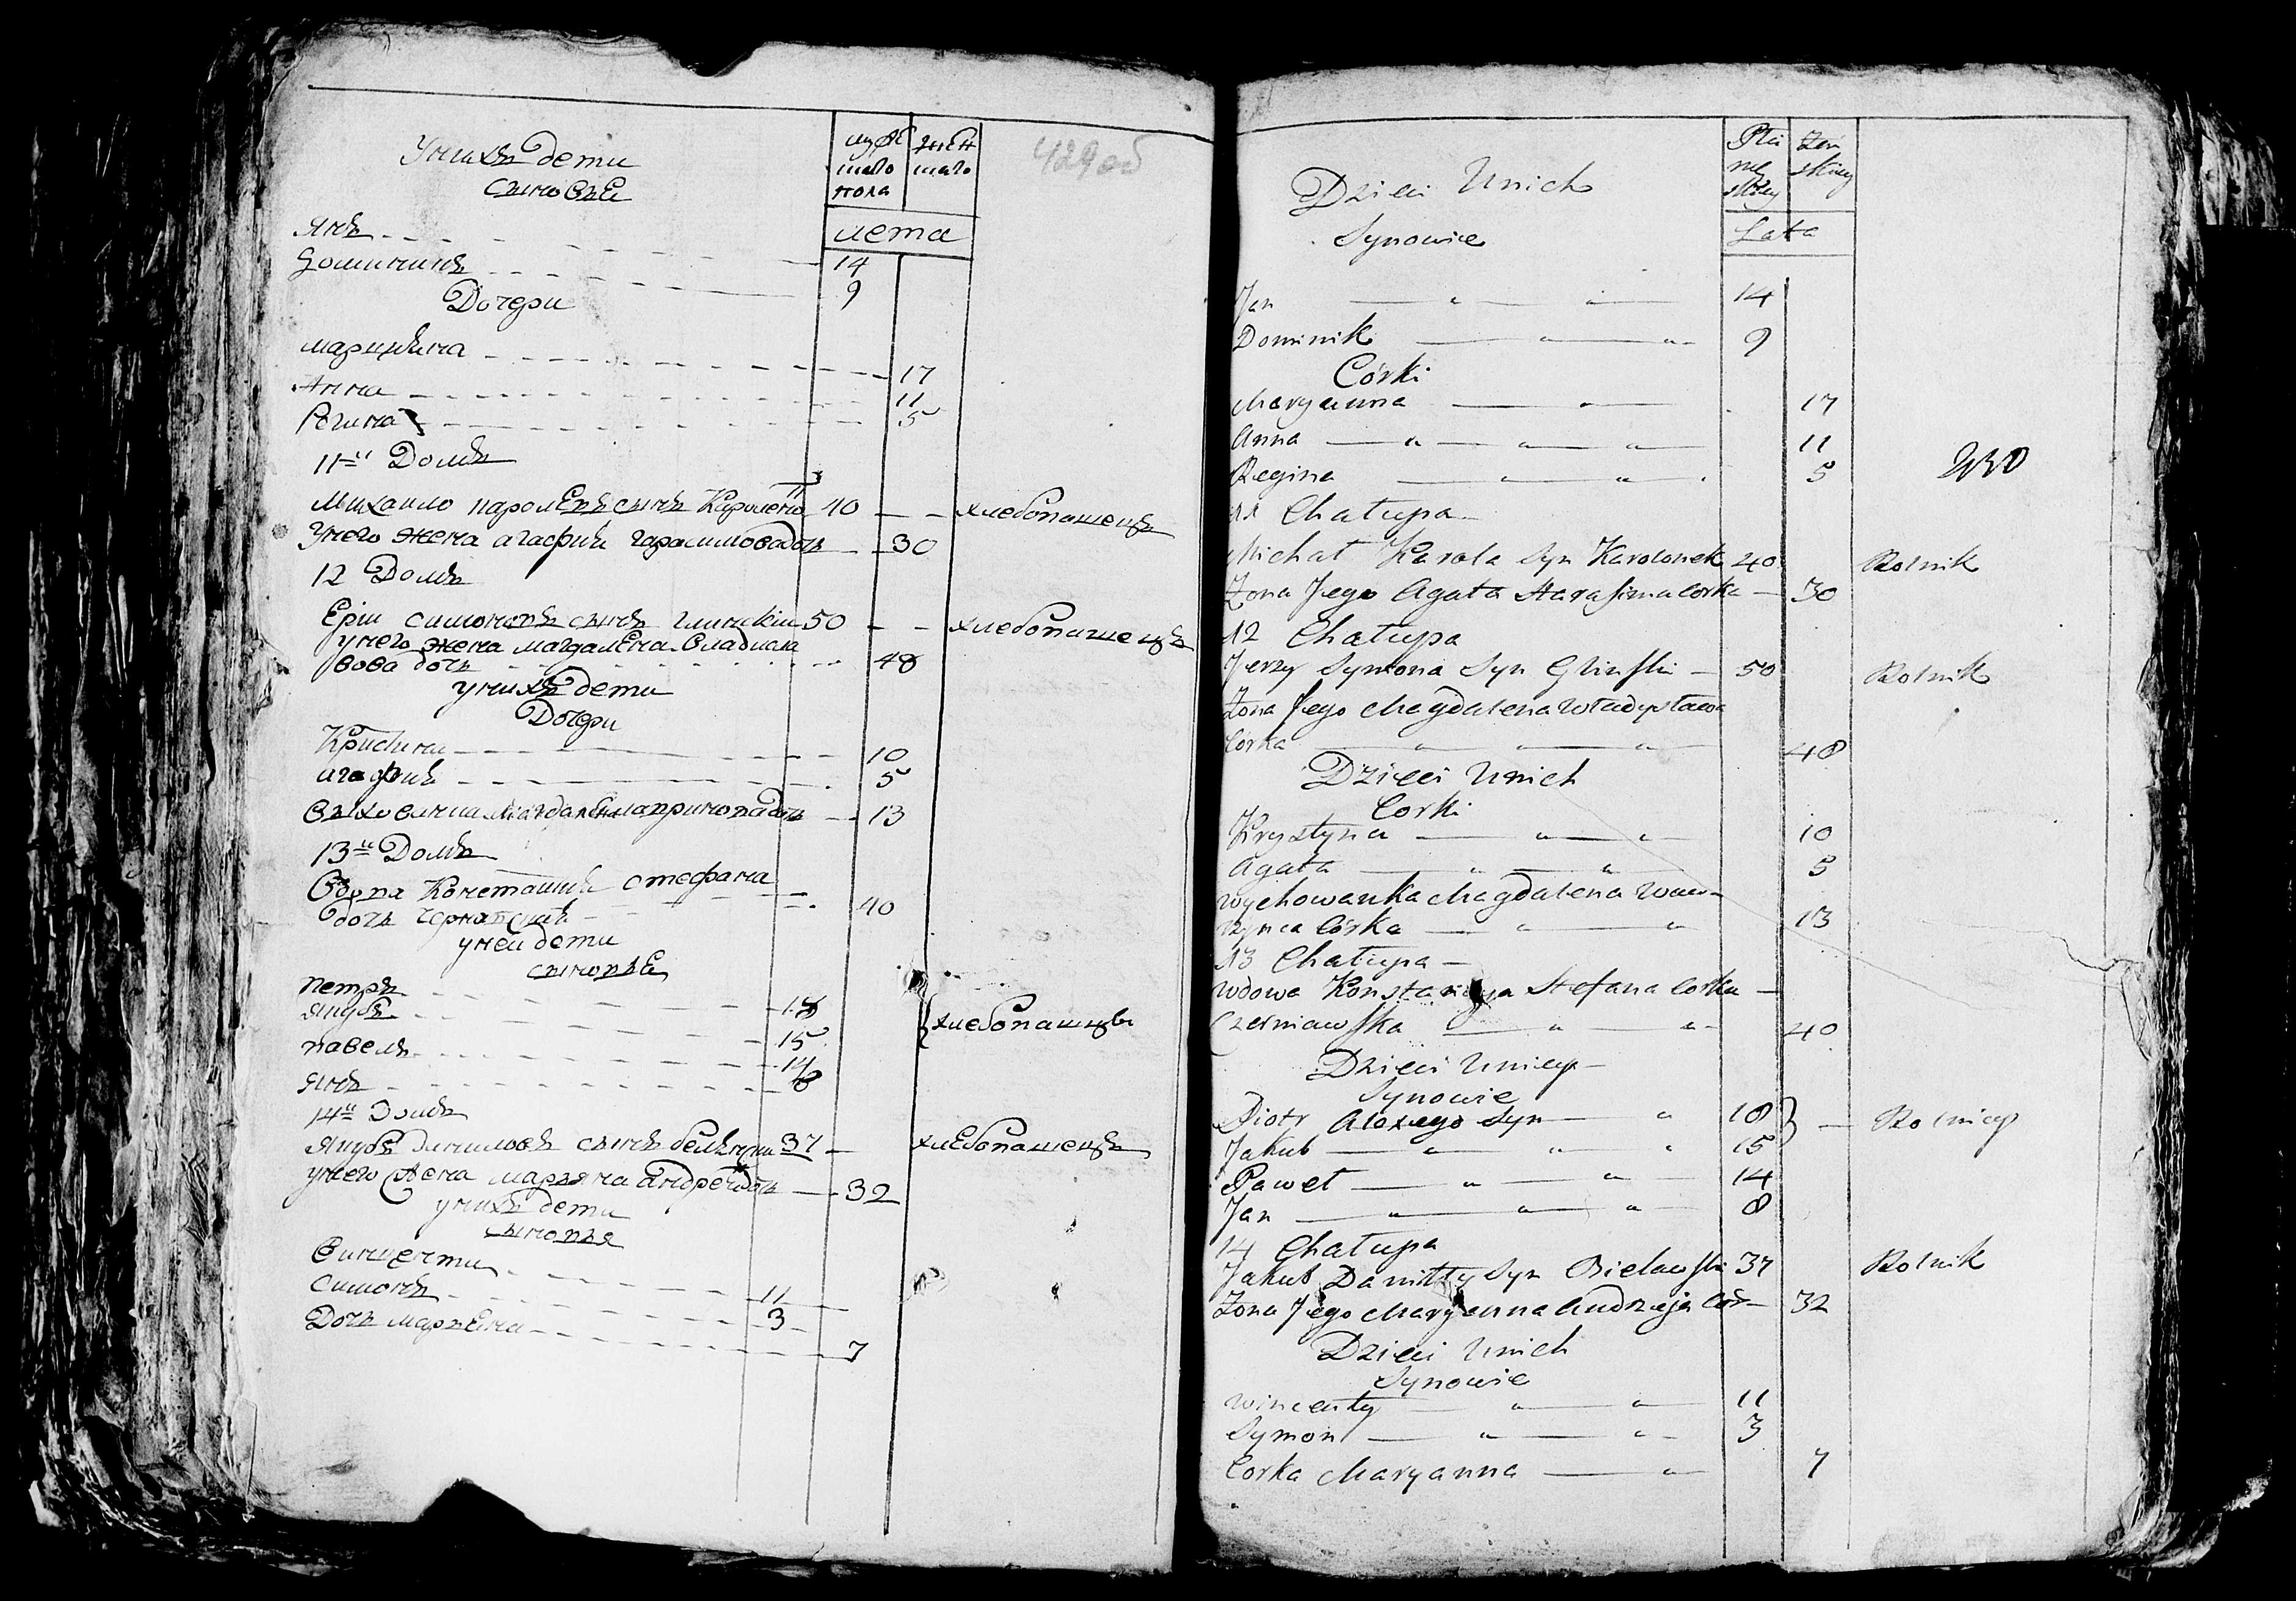 У нихъ дети
сыновье
муже
шаго
пола
женъ
шаго
429 об
лета
Янъ 14
Доминикъ 9
Дочери
марцыана 17
Анна 11
Регина 5
11й Домъ
Михаило каролевъ сынъ 40 хлебопашецъ
У него жена агафия дочь 30
12 Домъ
Ерiи симоновъ сынъ глинский 50 хлебопашецъ
у него жена магдалена владисла
вова дочь 48
у нихъ дети
Дочери
Кристина 10
агафия 5
магдалена дочь 13
13й Домъ
Вдова стефана
дочь 40
у ней дети
сыновье
петръ 18
якубъ 15 хлебопашцы
павелъ 14
янъ 8
14й Домъ
Якубъ даниловъ сынъ 37 хлебопашецъ
у него жена марьяна дочь 32
у нихъ дети
сыновья
винценти 11
симонъ 3
Дочь марьена 7
Dzieci Unich
Synowie
Plci
me
skiey
Zen
skiey
Lata
Jan 14
Dominik 9
Córki
Maryanna 17
Anna 11
Regina 5
430
11 Chałupa
Michał Karola Syn Karolonek 40 Rolnik
Zona Jego Agata Harasima corka 30
12 Chałupa
Jerzy Symona Syn Glinski 50 Rolnik
Zona Jego Magdalena Władysława
Córka 48
Dzieci Unich
Corki
Krystyna 10
Agata 5
wychowanka Magdalena Waw-
rzynca Córka 13
13 Chałupa
Wdowa Konstancya Stefana Corka
Czerniawska 40
Dzieci Uniey
Synowie
Piotr Alexego Syn 18 Rolnicy
Jakub 15
Paweł 14
Jan 8
14 Chałupa
Jakub Daniłły Syn Bielawski 37 Rolnik
Zona Jego Maryanna Andrzeja Cór 32
Dzieci Unich
Synowie
Wincenty 11
Symon 3
Corka Maryanna 7